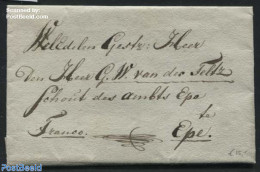 WelEdelen Gestr. Heer
Den Heer G. W. van der Feltz
Schout des ambts Epe
te
Franco. Epe.